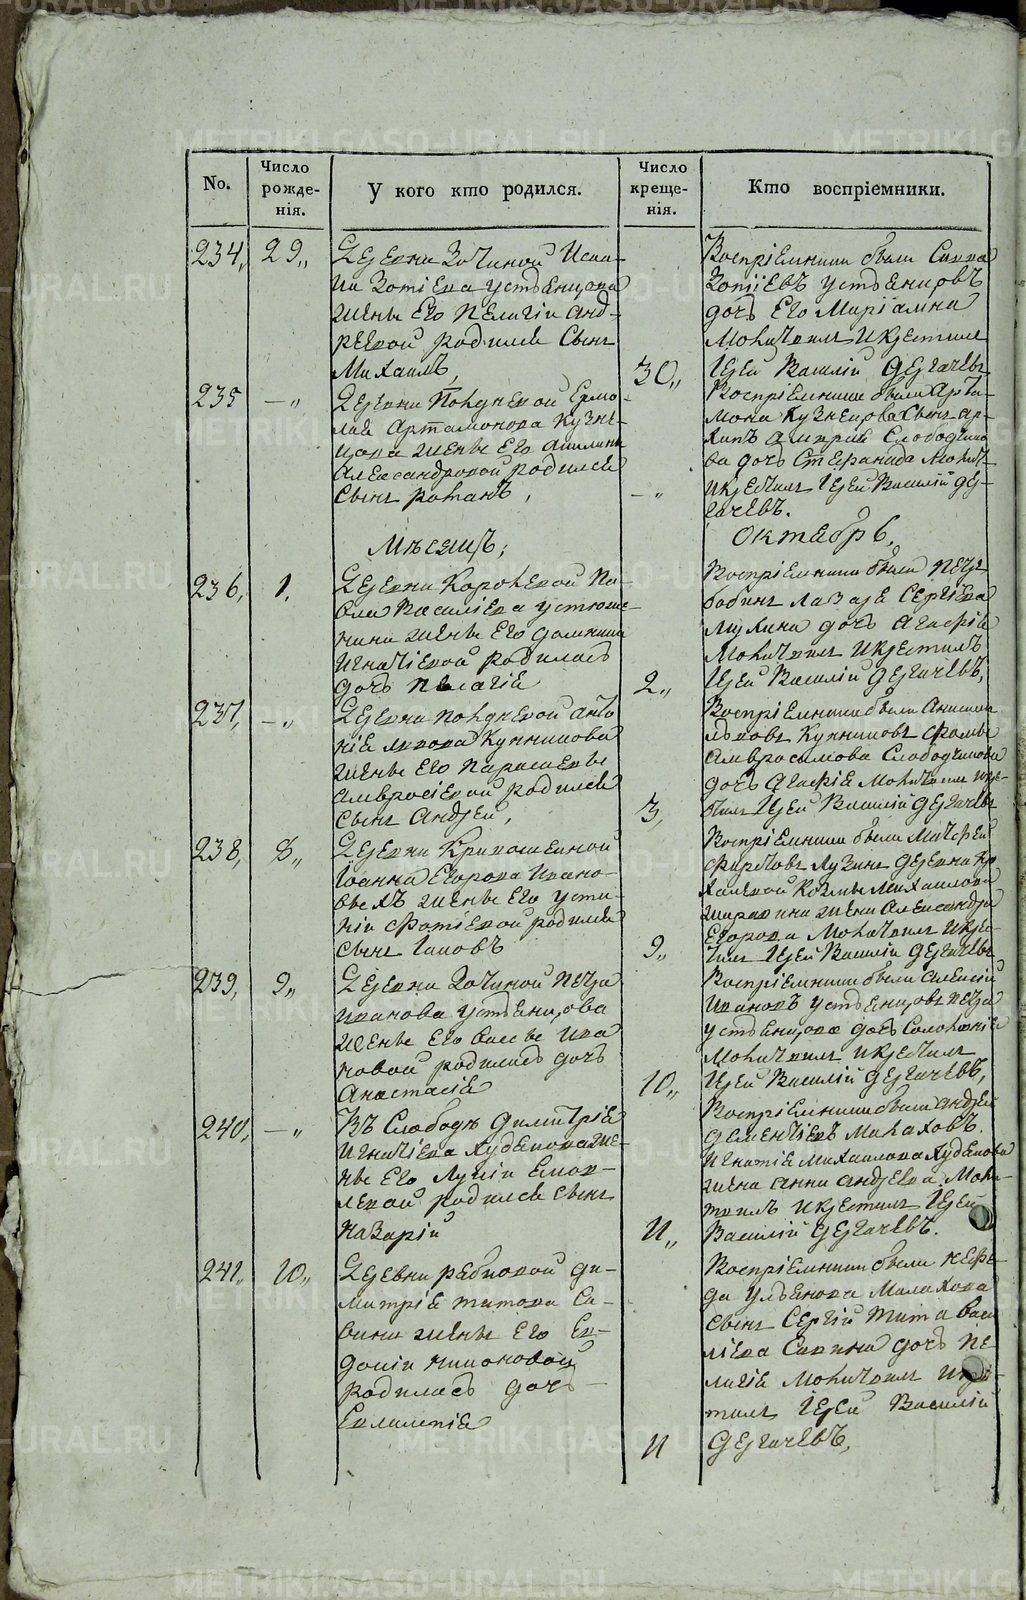 No.
Число рожде-нія.
У кого кто родился.
Число креще-нія.
Кто воспріемники.
234, 29,,
Деревни Зотиной Исаа-
ія Зотіева Устьенцова
жены Его Пелагіи Анд-
реевой родился Сынъ
Михаилъ,
30,,
Воспріемники были Савва
Зотіевъ Устьенцовъ
дочь Его Маріамна
Молитвилъ и крестилъ
Іерей Василій Дергачевъ
235 —,,
Деревни Покуневой Ермо-
лая Артамонова Кузне-
цова жены Его
Александровой родился
Сынъ Романъ,
—,,
Воспріемники были Арта-
мона Кузнецова Сынъ Ар-
хипъ Слободчико
ва дочь Стефанида Молит-
и крестилъ Іерей Василій Дер-
гачевъ.
Мѣсяцъ;
Октябрь,
236, 1.
Деревни Коровевой Па-
вла Василіева Устюжа-
нина жены Его Домнины
Игнатіевой родилась
дочь Пелагіе
2,,
Воспріемники были Петръ
Бабинъ Лазаре Сергіева
Мухина дочь Агафіе
Молитвилъ и крестилъ
Іерей Василій Дергачевъ,
237, —,,
Деревни Покуневой Анто
ніе Кунникова
жены Его Параскевы
Амвросіевой родился
Сынъ Андрей,
3,
Воспріемники были
Кунниковъ
Амвросимова Слободчикова
дочь Агафіе Молитвилъ и кре-
стилъ Іерей Василій Дергачевъ
238, 8,,
Деревни Кривошеиной
Іоанна Егорова Ивано-
выхъ жены Его Усти-
ніи Фотіевой родился
Сынъ Іаковъ
9,,
Воспріемники были Матфей
Лузинъ Деревни Кро
халевой Козмы Михаилова
жена Александра
Егорова Молитвилъ и кре-
тилъ Іерей Василій Дергачевъ
239, 9,,
Деревни Зотиной Петра
Иванова Устьенцова
жены Его Ива
новой родилась дочь
Анастасіе
10,,
Воспріемники были Алексій
Ивановъ Устьенцовъ Петра
Устьенцова дочь Соломоніе
Молитвилъ и крестилъ
Іерей Василій Дергачевъ,
240, —,,
Въ Слободѣ Димитріе
Игнатіева Худекова же-
ны Его Лукіи Ермо-
леевой родился сынъ
Назарій
11,,
Воспріемники были Андрей
Дементіевъ Малаховъ.
Игнатіе Михаилова Худекова
жена Анна Андреева Моли-
твилъ и крестилъ Іерей
Василій Дергачевъ.
241, 10,,
Деревни Рябковой Ди-
митріе Титова Са-
вина жены Его Ев-
докіи
родилась дочь
Евлампіе
11
Воспріемники были Нефе-
да Ульянова Малахова
Сынъ Сергій Тита Васи
ліева Савина дочь Пе-
лагіе Молитвилъ и кре-
тилъ Іерей Василій
Дергачевъ,
METRIKI.GASO-URAL.RU